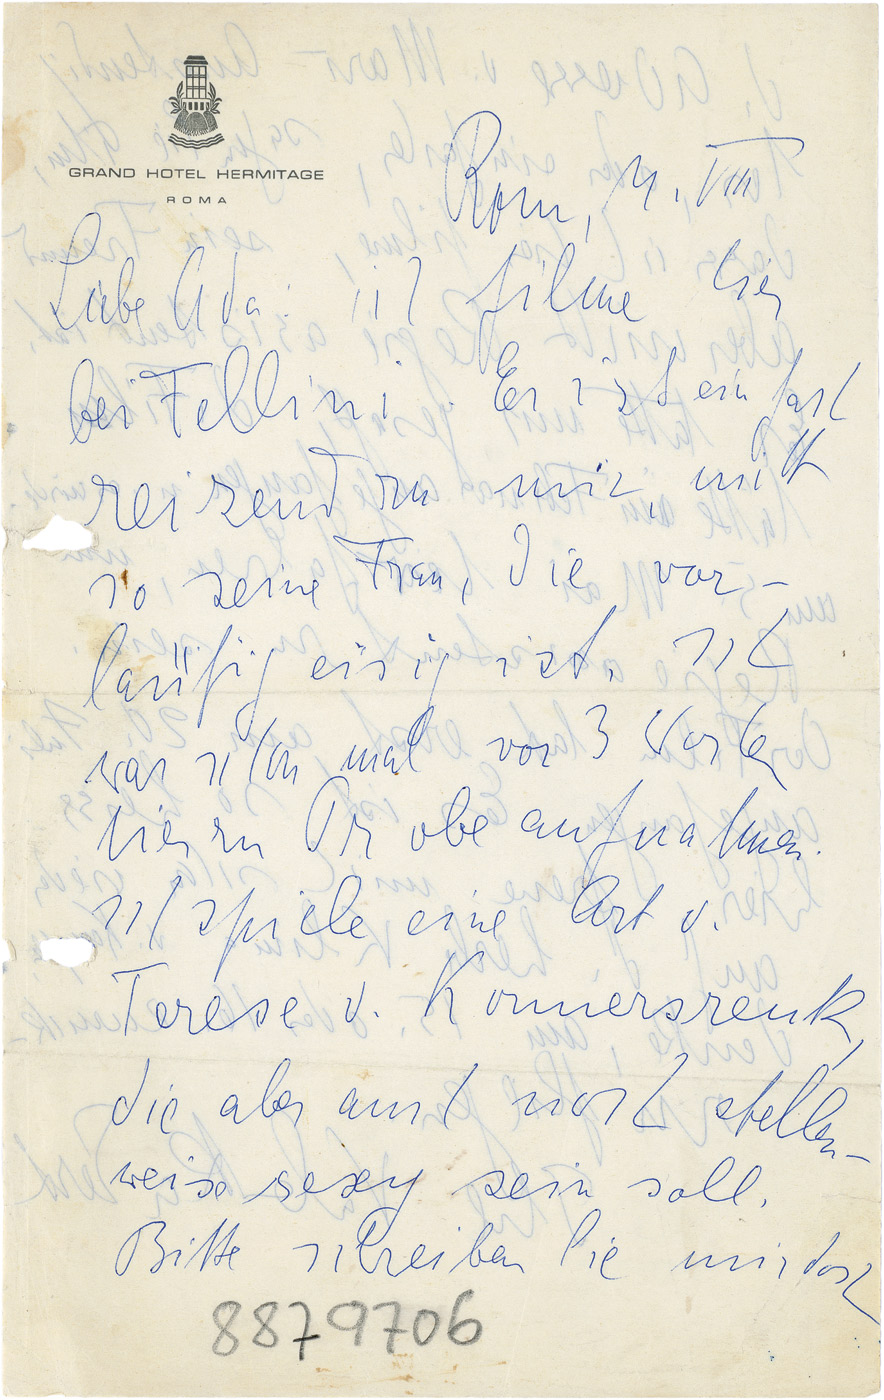 GRAND HOTEL HERMITAGE
ROMA
Rom, 4. VIII
Liebe Ada: ich filme hier
bei Fellini. Er ist einfach
reizend zu mir, mitt
so seine Frau, die vor-
läufig eisig ist. Ich
war schon mal vor 3 Wochen
hier zu Probeaufnahmen.
Ich spiele eine Art v.
Terese v. Konnersreuth,
die aber auch noch stellen-
weise sexy sein soll.
Bitte schreiben Sie mir doch
8879706